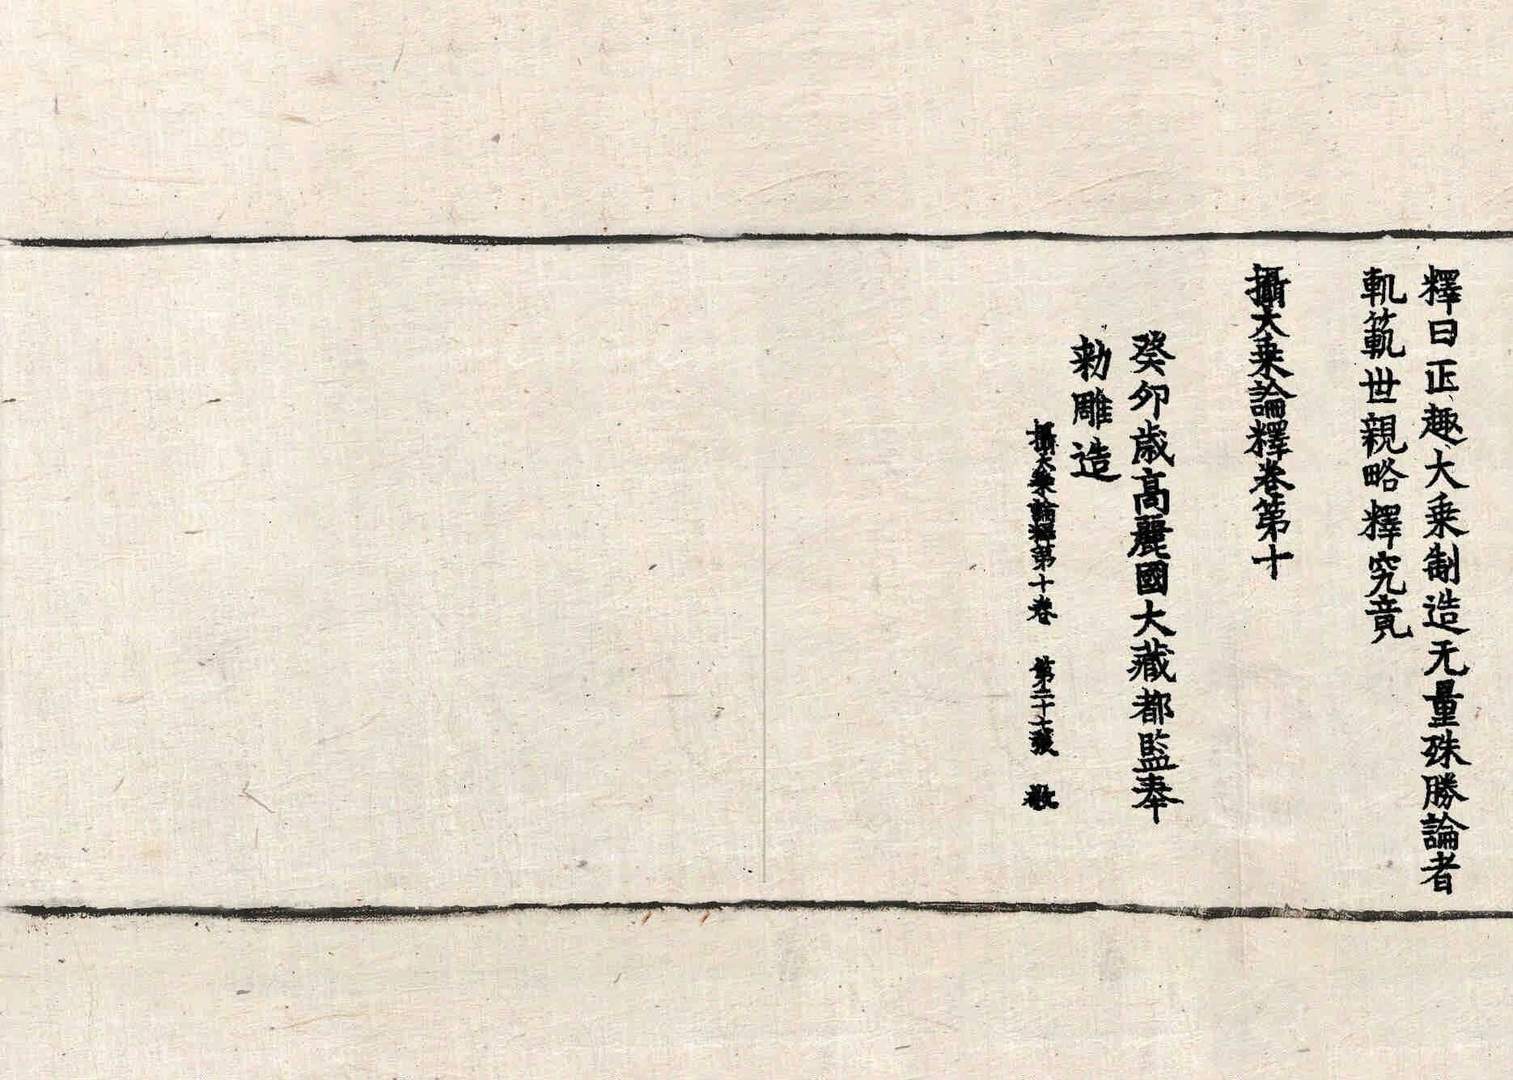 釋曰正趣大乗制造无量殊勝論者
軌範世親略釋究竟
攝大乗論釋卷第十
癸卯歲高麗國大藏都監奉
勑雕造
攝大乗論釋第十卷 第二十七張 敢